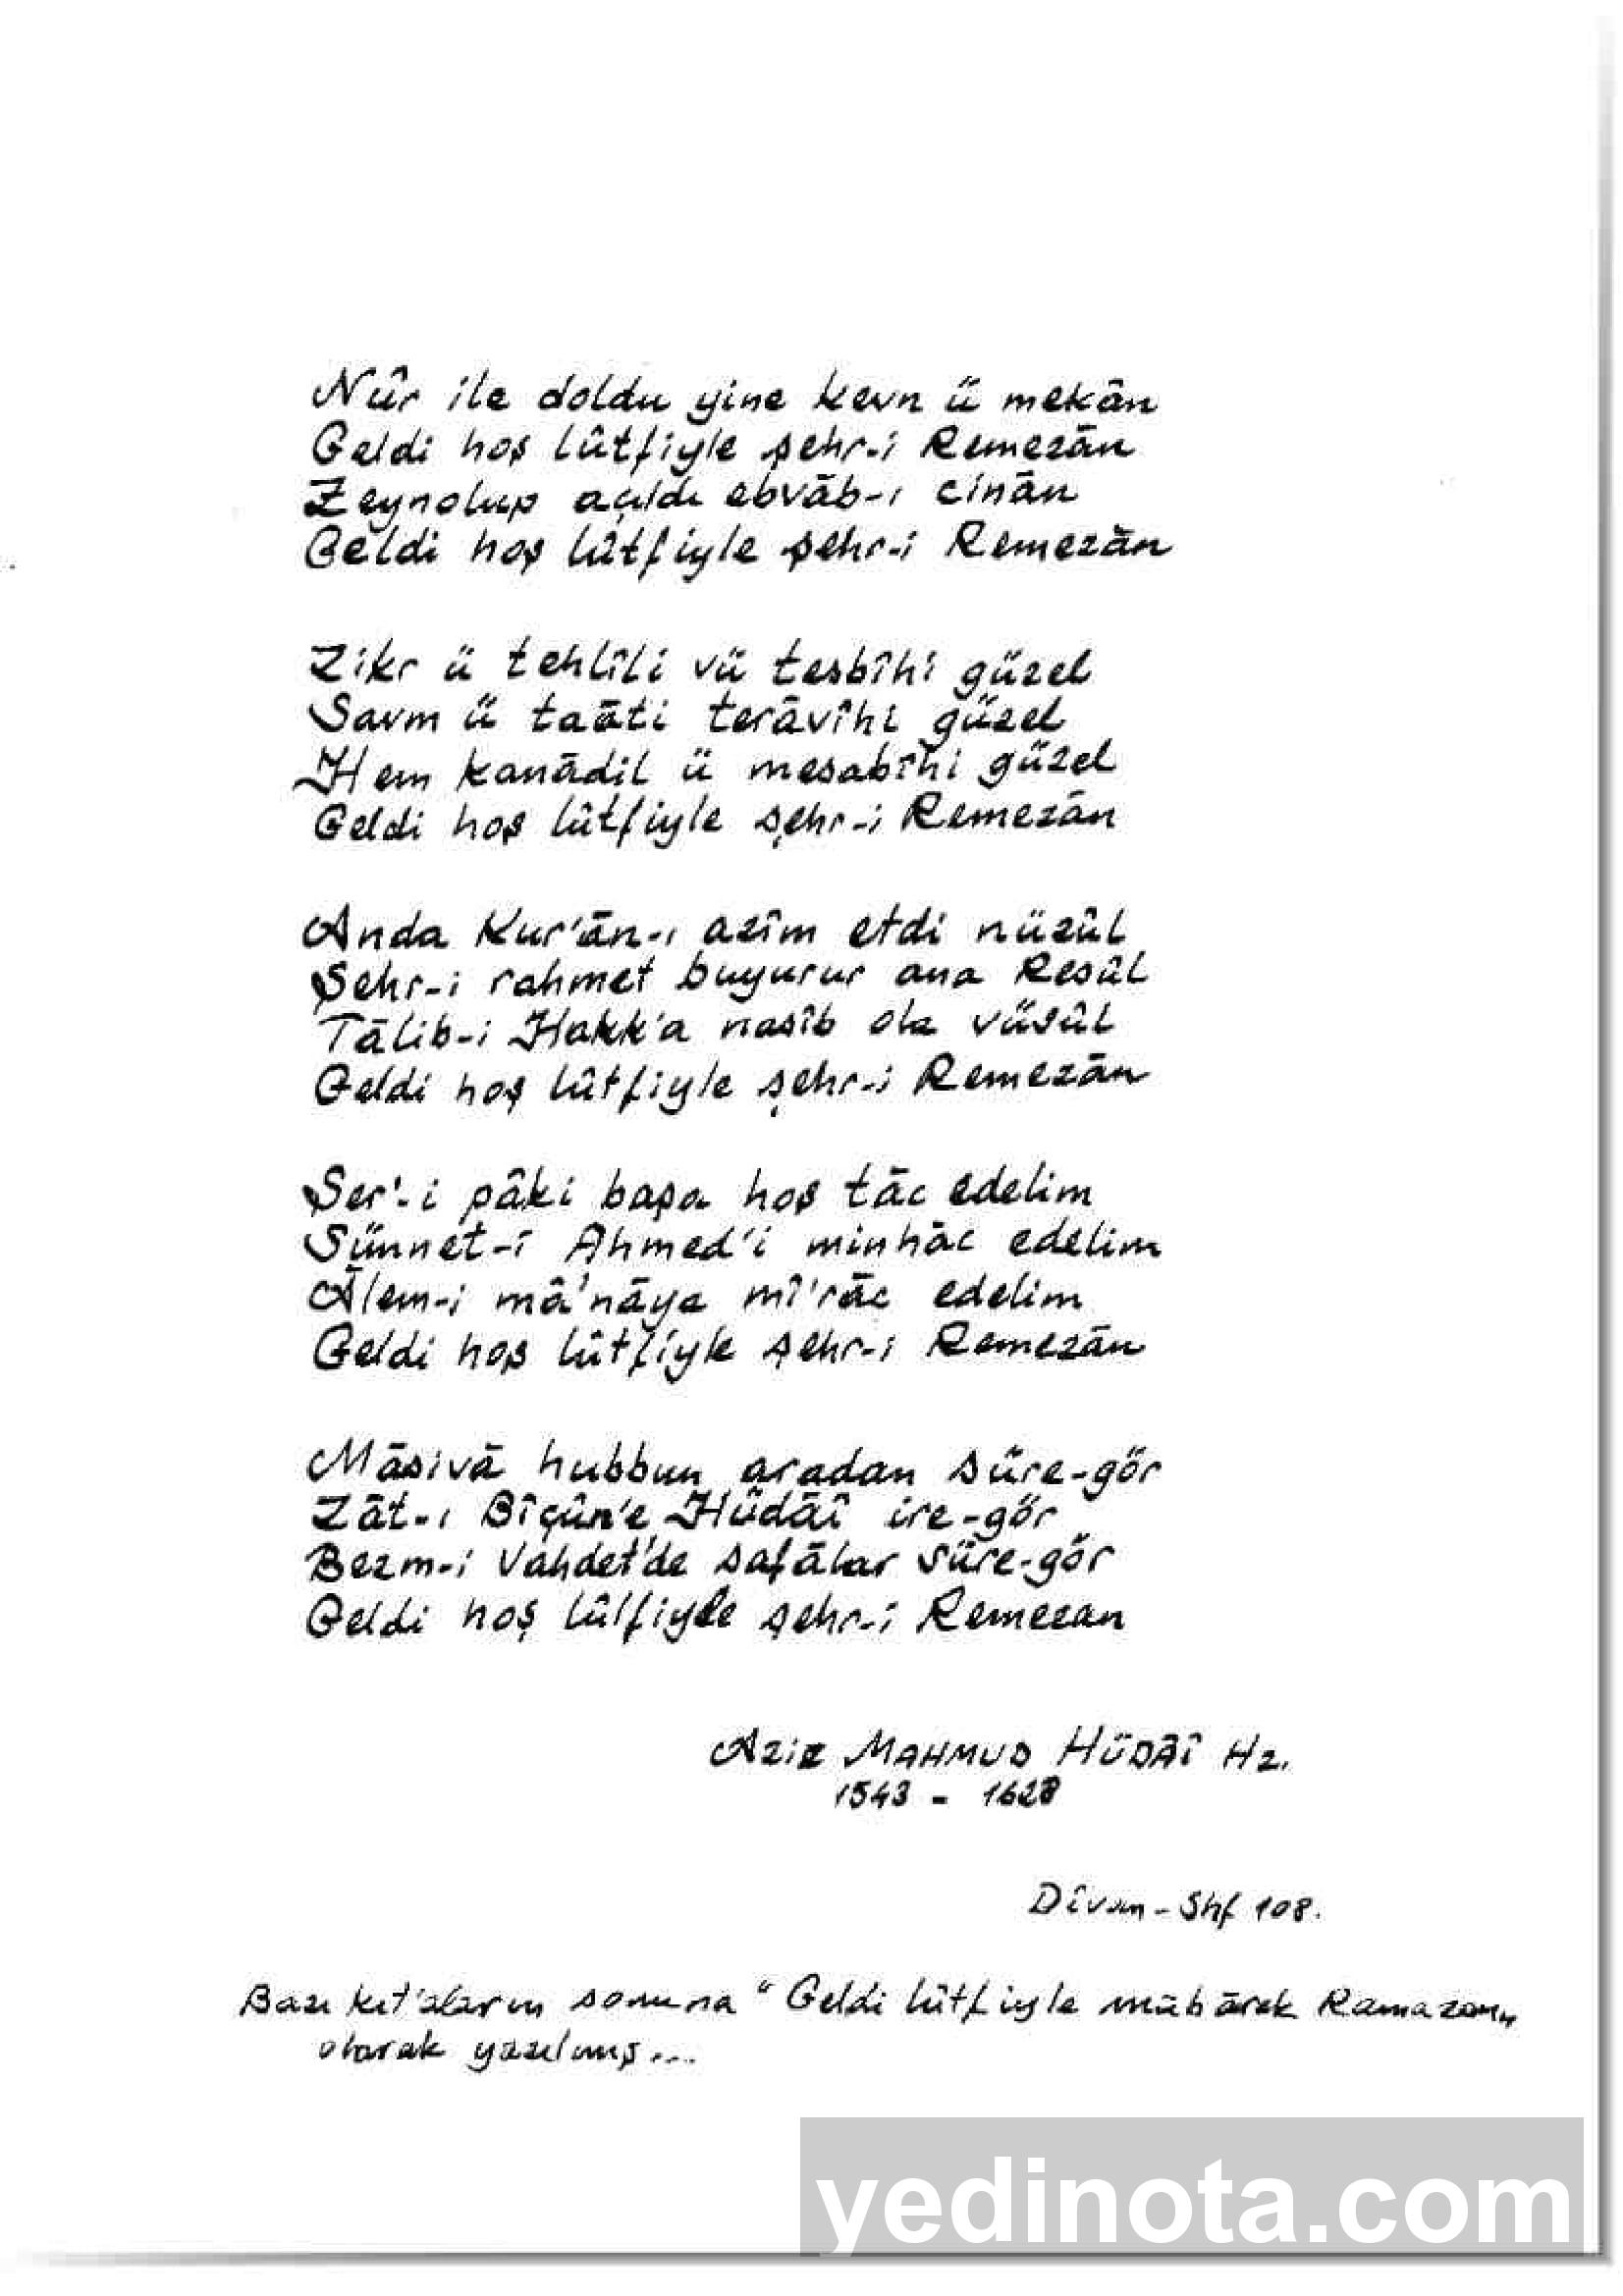 Nûr ile doldu yine kevn ü mekân
Geldi hoş lûtfiyle şehr-i Remezān
Zeynolup açıldı ebvāb-ı cinān
Geldi hoş lûtfiyle şehr-i Remezān
Zikr ü tehlîli vü tesbîhi güzel
Savm ü taāti terāvîhi güzel
Hem kanādil ü mesabîhi güzel
Geldi hoş lûtfiyle şehr-i Remezān
Anda Kur'ān-ı azîm etdi nüzûl
Şehr-i rahmet buyurur ana Resûl
Tālib-i Hakk'a nasîb ola vüsûl
Geldi hoş lûtfiyle şehr-i Remezān
Şer'-i pâki başa hoş tāc edelim
Sünnet-i Ahmed'i minhāc edelim
Ālem-i mâ'nāya mî'rāc edelim
Geldi hoş lûtfiyle şehr-i Remezān
Māsivā hubbun aradan süre-gör
Zât-ı Bîçûn'e Hüdāî ire-gör
Bezm-i Vahdet'de safālar süre-gör
Geldi hoş lûlfiyle şehr-i Remezan
AZiZ MAHMUD HÜDĀÎ Hz.
1543 - 1628
Dîvan - Shf 108.
Bazı kıt'aların sonuna "Geldi lûtfiyle mübārek Ramazan"
olarak yazılmış...
yedinota.com